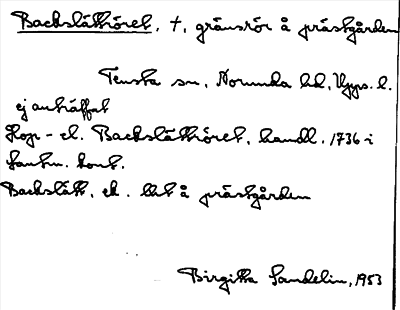 Backslättröret, †, gränsrör å prästgården
Tensta sn, Norunda hd, Upps. l.
ej anträffat
Kop-el. Backslättröret, handl. 1736 i
Lantm. kont.
Backslätt, ek. bet å prästgården
Birgitta Sandelin, 1953